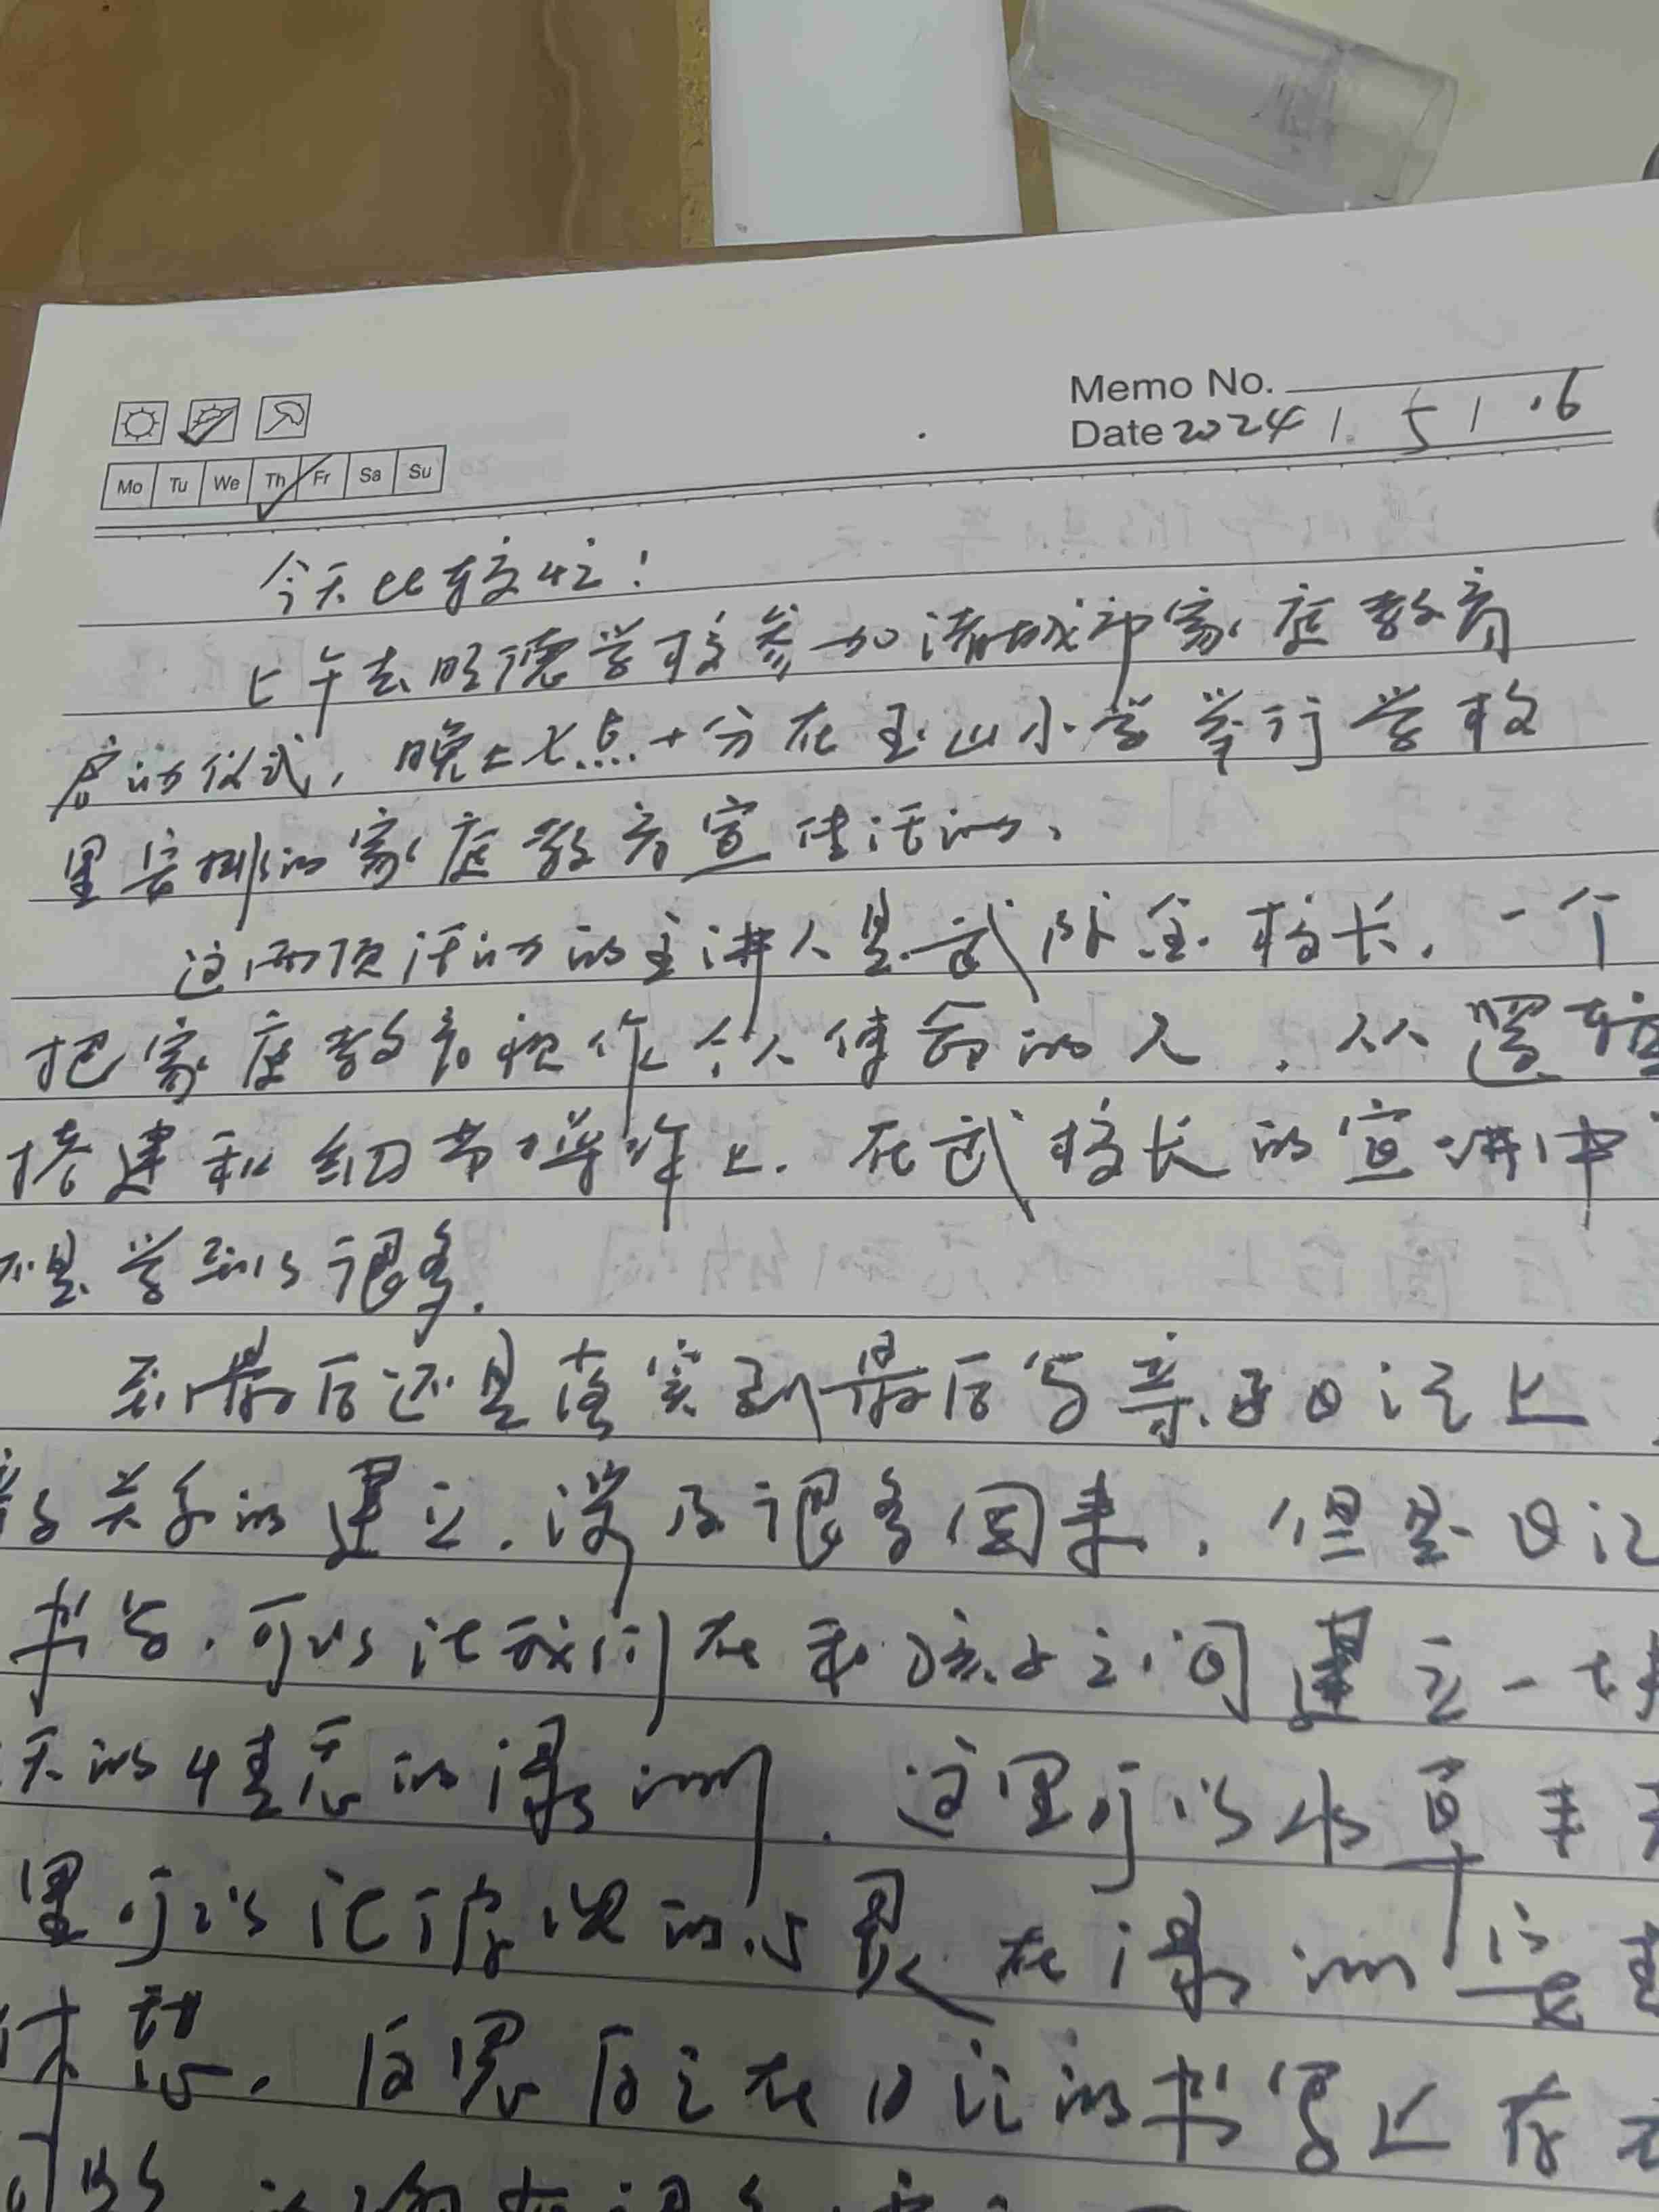 Memo No.
Date 2024 / 5 / 16
Mo Tu We Th Fr Sa Su
今天比较忙！
上午去明德学校参加诸城市家庭教育
启动仪式，晚上七点十分在玉山小学举行学校
里安排的家庭教育宣传活动、
这两项活动的主讲人是武际金校长，一个
把家庭教育视作个人使命的人，从逻辑
搭建和细节指导上，在武校长的宣讲中
还是学到了很多。
到最后还是落实到最后写亲子日记上
关系的建立，涉及很多因素，但是日记
书写，可以让我们在和孩子之间建立一块
天的情意的湿润，这里可以水草丰
里可以让疲惫的心灵在湿润
休憩，反思反之在日记的书写上存